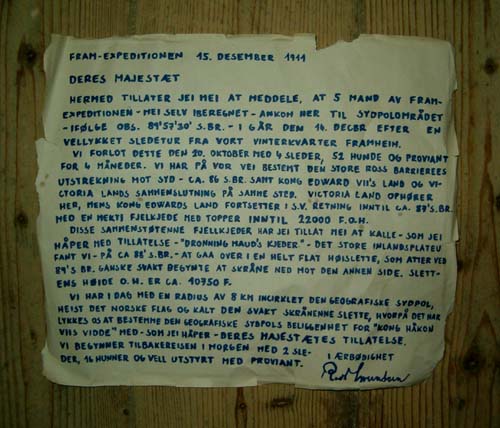 FRAM-EXPEDITIONEN 15. DESEMBER 1911
DERES MAJESTÆT
HERMED TILLATER JEI MEI AT MEDDELE, AT 5 MAND AV FRAM-
EXPEDITIONEN - MEI SELV IBEREGNET - ANKOM HER TIL SYDPOLOMRÅDET
- IFØLGE OBS. 89°57'30" S.BR. - I GÅR DEN 14. DECBR EFTER EN
VELLYKKET SLEDETUR FRA VORT VINTERKVARTER FRAMHEIM.
VI FORLOT DETTE DEN 20. OKTOBER MED 4 SLEDER, 52 HUNDE OG PROVIANT
FOR 4 MÅNEDER. VI HAR PÅ VOR VEI BESTEMT DEN STORE ROSS BARRIERES
UTSTREKNING MOT SYD - CA. 86 S.BR. SAMT KONG EDWARD VII'S LAND OG VI-
CTORIA LANDS SAMMENSLUTNING PÅ SAMME STED. VICTORIA LAND OPHØRER
HER, MENS KONG EDWARDS LAND FORTSETTER I S.V. RETNING INNTIL CA. 87°S.BR.
MED EN MEKTI FJELKJEDE MED TOPPER INNTIL 22000 F.O.H.
DISSE SAMMENSTØTENNE FJELLKJEDER HAR JEI TILLAT MEI AT KALLE - SOM JEI
HÅPER MED TILLATELSE - "DRONNING MAUD'S KJEDER" - DET STORE INLANDSPLATEU
FANT VI - PÅ CA 88° S.BR. - AT GAA OVER I EN HELT FLAT HØISLETTE, SOM ATTER VED
89°S BR. GANSKE SVAKT BEGYNTE AT SKRÅNE NED MOT DEN ANNEN SIDE. SLETT-
ENS HØIDE O.H. ER CA. 10750 F.
VI HAR I DAG MED EN RADIUS AV 8 KM INCIRKLET DEN GEOGRAFISKE SYDPOL,
HEIST DET NORSKE FLAG OG KALT DEN SVAKT SKRÅNENNE SLETTE, HVORPÅ DET HAR
LYKKES OS AT BESTEMME DEN GEOGRAFISKE SYDPOLS BELIGGENHET FOR "KONG HÅKON
VIIS VIDDE" MED - SOM JEI HÅPER - DERES MAJESTÆTES TILLATELSE.
VI BEGYNNER TILBAKEREISEN I MORGEN MED 2 SLE-
DER, 16 HUNNER OG VELL UTSTYRT MED PROVIANT.
I ÆRBØDIGHET